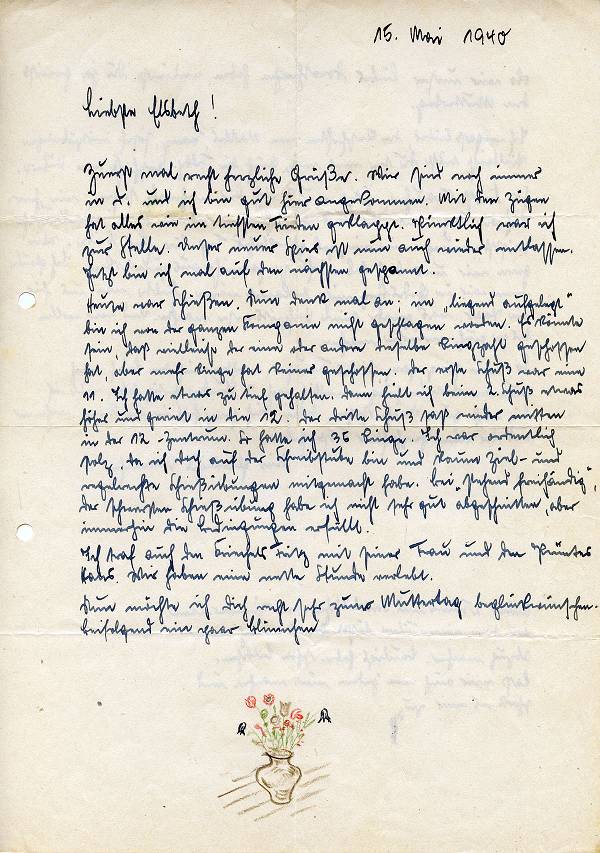 15. Mai 1940
Liebste Elsbeth!
Zuerst mal recht herzliche Grüße. Wir sind noch immer
in D. und ich bin gut hier angekommen. Mit den Zügen
hat alles wie im tiefsten Frieden geklappt. Pünktlich war ich
zur Stelle. Unser neuer Spies ist nun auch wieder entlassen.
Jetzt bin ich mal auf den nächsten gespannt.
Heute war Schießen. Nun denk mal an: im „liegend aufgelegt"
bin ich von der ganzen Kompanie nicht geschlagen worden. Es könnte
sein, daß vielleicht der eine oder andere dieselbe Ringzahl geschossen
hat, aber mehr Ringe hat keiner geschossen. Der erste Schuß war eine
11. Ich hatte etwas zu tief gehalten. Dann hielt ich beim 2. Schuß etwas
höher und geriet in die 12. Der dritte Schuß saß wieder mitten
in der 12 - Zentrum. So hatte ich 35 Ringe. Ich war ordentlich
stolz, da ich doch auf der Schreibstube bin und kaum Ziel- und
regelrechte Schießübungen mitgemacht habe. Bei „stehend freihändig",
der schwersten Schießübung habe ich nicht sehr gut abgeschnitten, aber
immerhin die Bedingungen erfüllt.
Ich traf auch den Fritz mit seiner Frau und den
Hans. Wir haben eine nette Stunde verlebt.
Nun möchte ich Dich recht sehr zum Muttertag beglückwünschen.
Beifolgend ein paar Blümchen